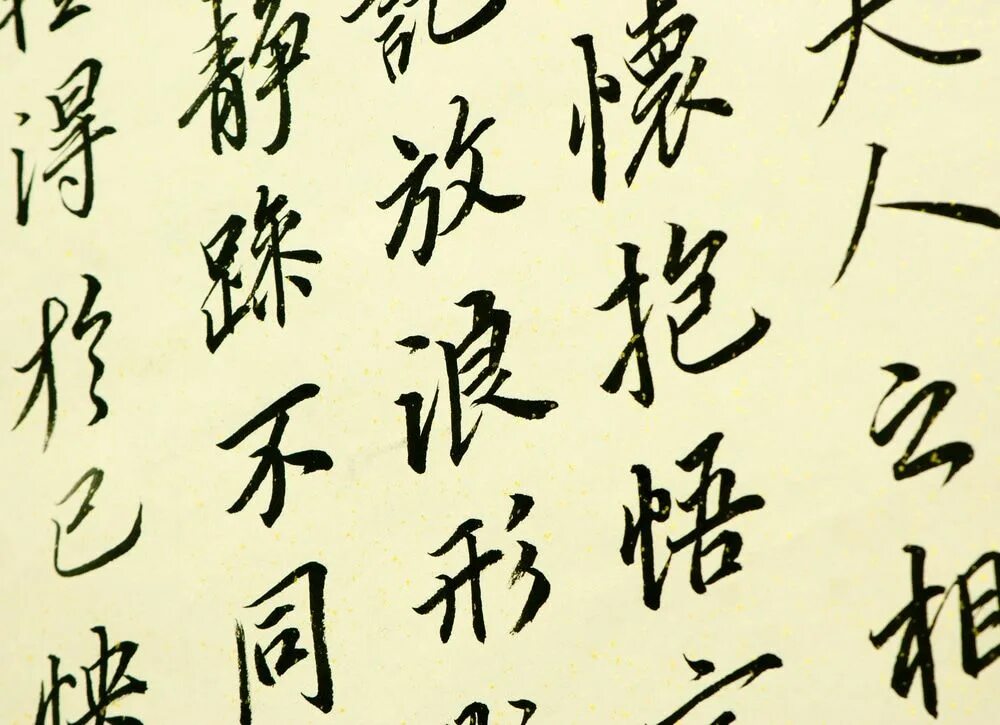 夫人之相
懷抱悟言
託放浪形
靜躁不同
得於己怏